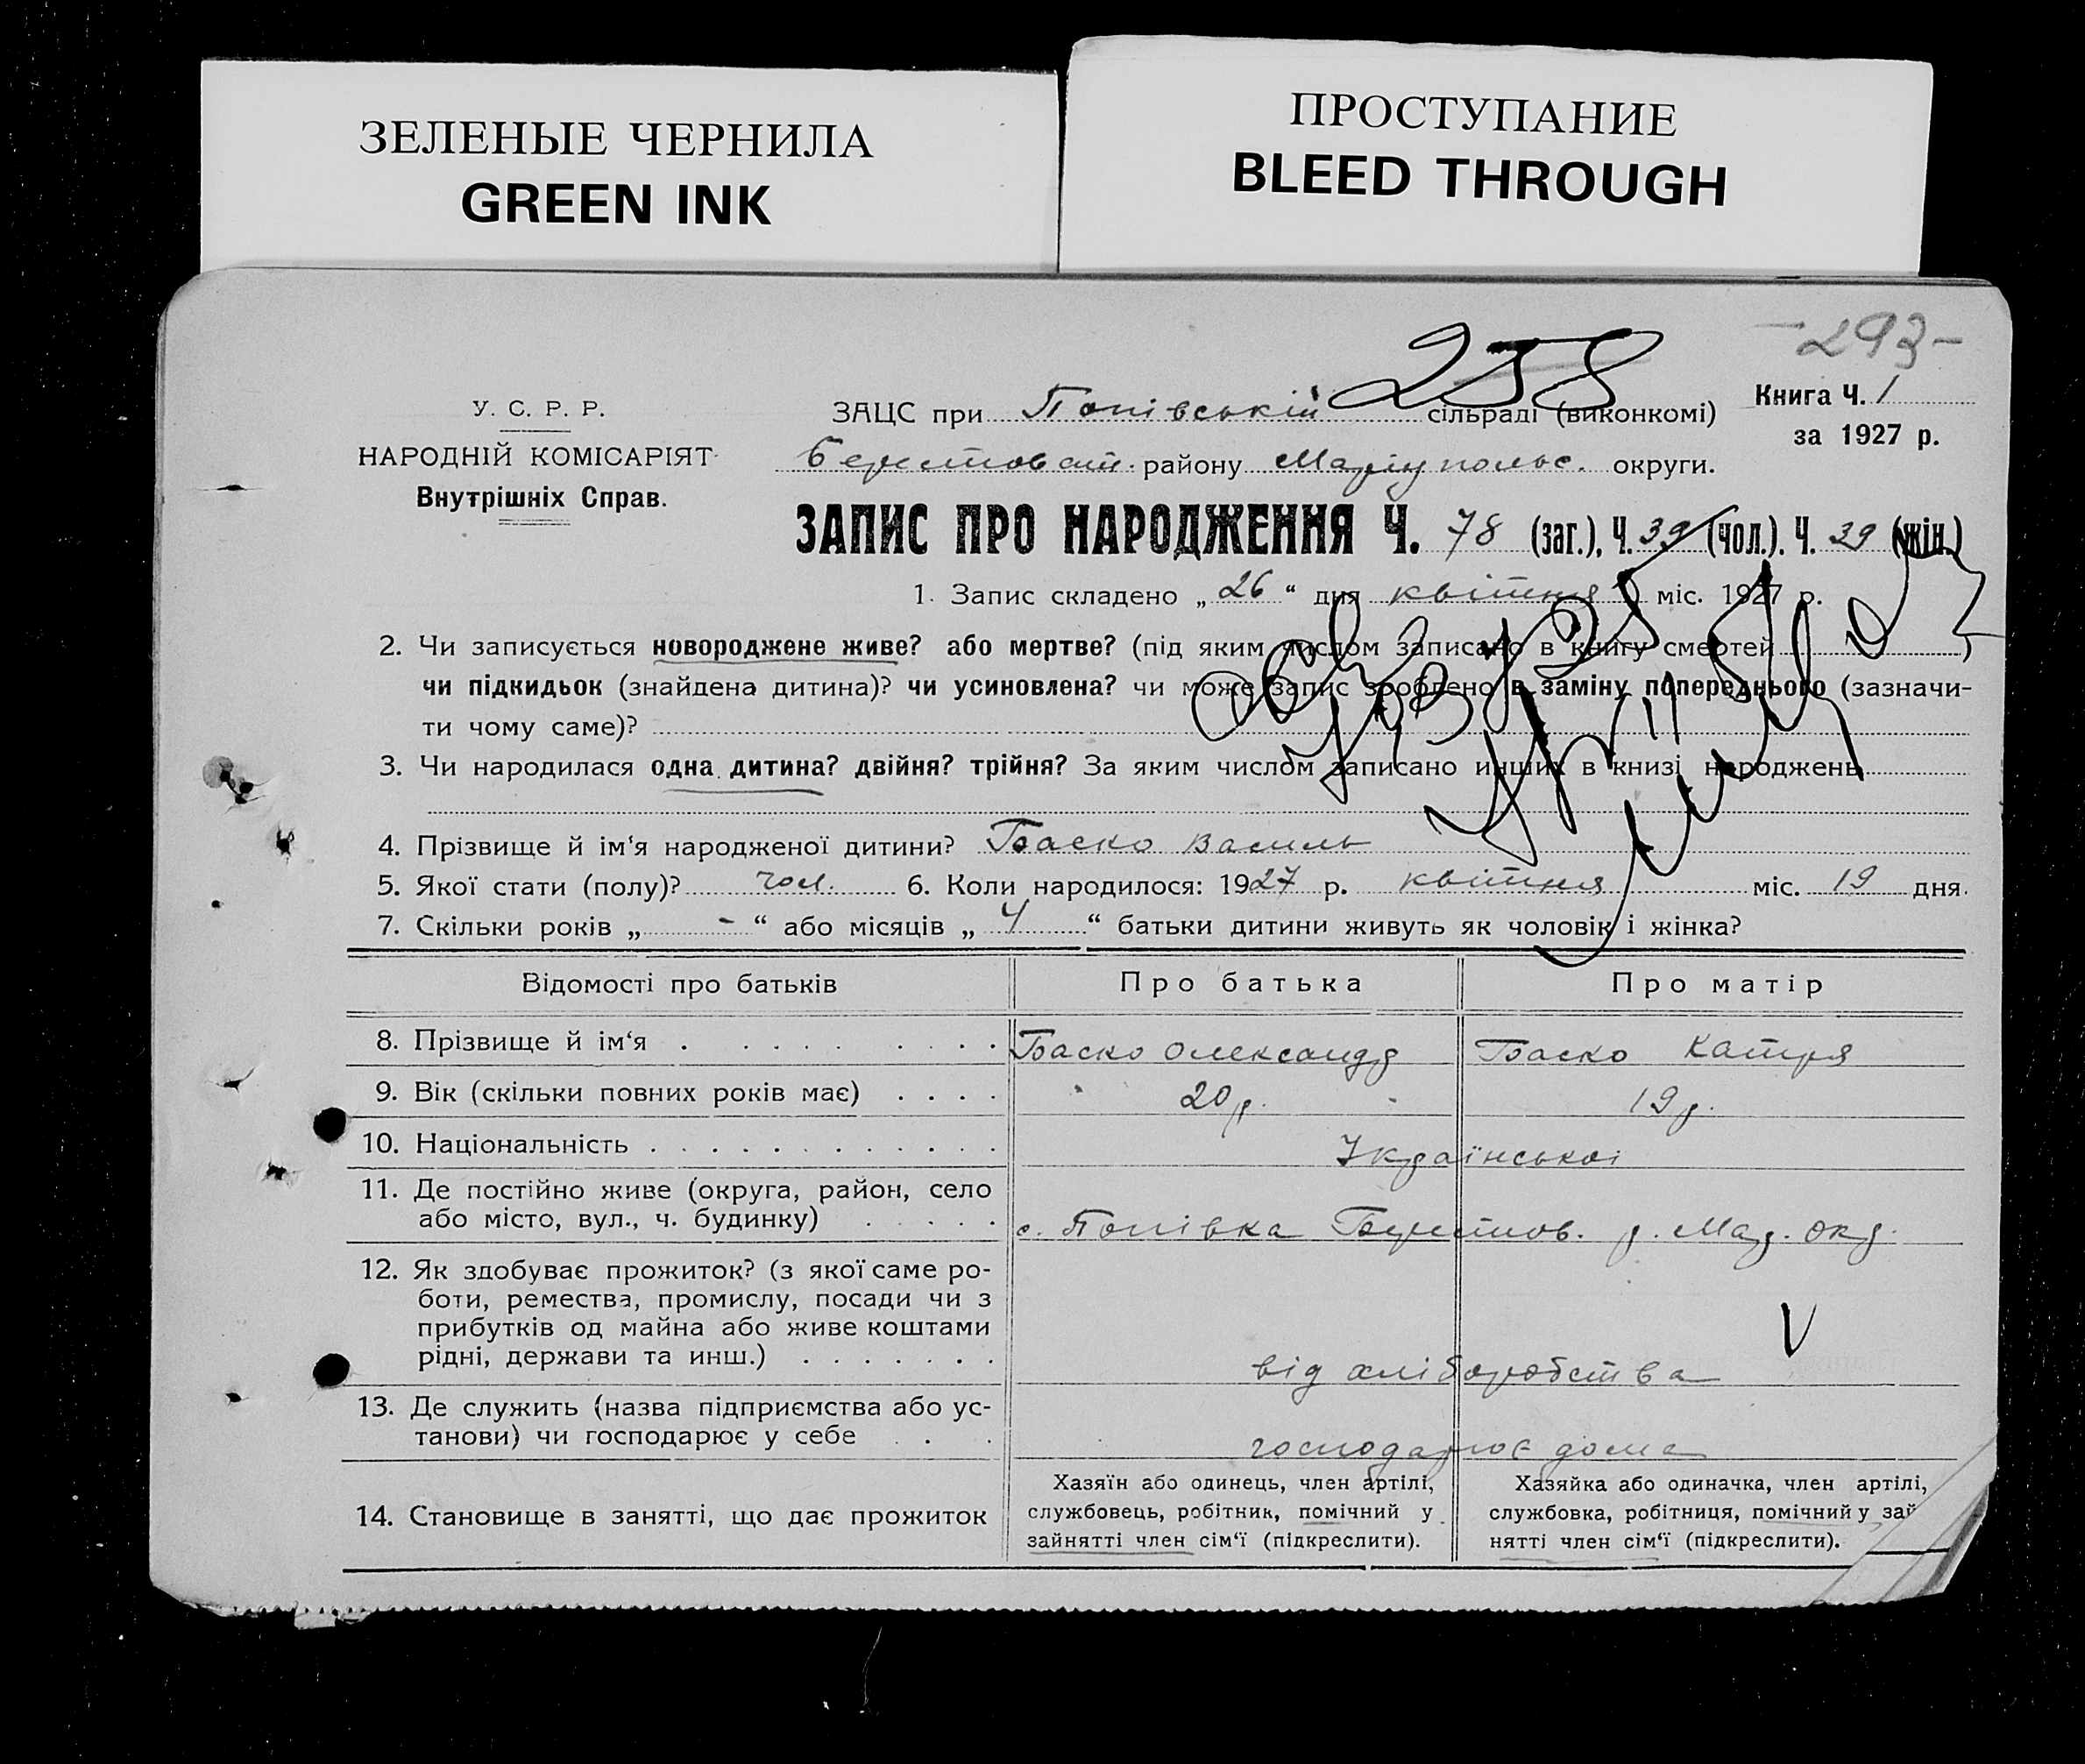 ЗЕЛЕНЫЕ ЧЕРНИЛА
GREEN INK
ПРОСТУПАНИЕ
BLEED THROUGH
-293-
258
У. С. Р. Р.
НАРОДНІЙ КОМІСАРІЯТ
Внутрішніх Справ.
ЗАЦС при Попівській сільраді (виконкомі)
Книга Ч. 1
за 1927 р.
Берестоват. району Маріупольс. округи.
ЗАПИС ПРО НАРОДЖЕННЯ Ч. 78 (заг.), Ч. 39 (чол.). Ч. 39 (жін.)
1. Запис складено „ 26 “ дня квітня міс. 1927 р.
2. Чи записується новороджене живе? або мертве? (під яким числом записано в книгу смертей )
чи підкидьок (знайдена дитина)? чи усиновлена? чи може запис зроблено в заміну попереднього (зазначи-
ти чому саме)?
3. Чи народилася одна дитина? двійня? трійня? За яким числом записано инших в книзі народжень
4. Прізвище й ім‘я народженої дитини? Баско Василь
5. Якої стати (полу)? чол. 6. Коли народилося: 1927 р. квітня міс. 19 дня.
7. Скільки років „ - “ або місяців „ 4 “ батьки дитини живуть як чоловік і жінка?
Відомості про батьків Про батька Про матір
8. Прізвище й ім‘я Баско Олександр Баско Катря
9. Вік (скільки повних років має) 20 р. 19 р.
10. Національність Української
11. Де постійно живе (округа, район, село
або місто, вул., ч. будинку) с. Попівка Берестов. р. Мар. окр.
12. Як здобуває прожиток? (з якої саме ро-
боти, ремества, промислу, посади чи з
прибутків од майна або живе коштами
рідні, держави та инш.) від хліборобства
13. Де служить (назва підприємства або ус-
танови) чи господарює у себе господарює дома
14. Становище в занятті, що дає прожиток
Хазяїн або одинець, член артілі,
службовець, робітник, помічний у
зайнятті член сім‘ї (підкреслити).
Хазяйка або одиначка, член артілі,
службовка, робітниця, помічний у зай
нятті член сім‘ї (підкреслити).